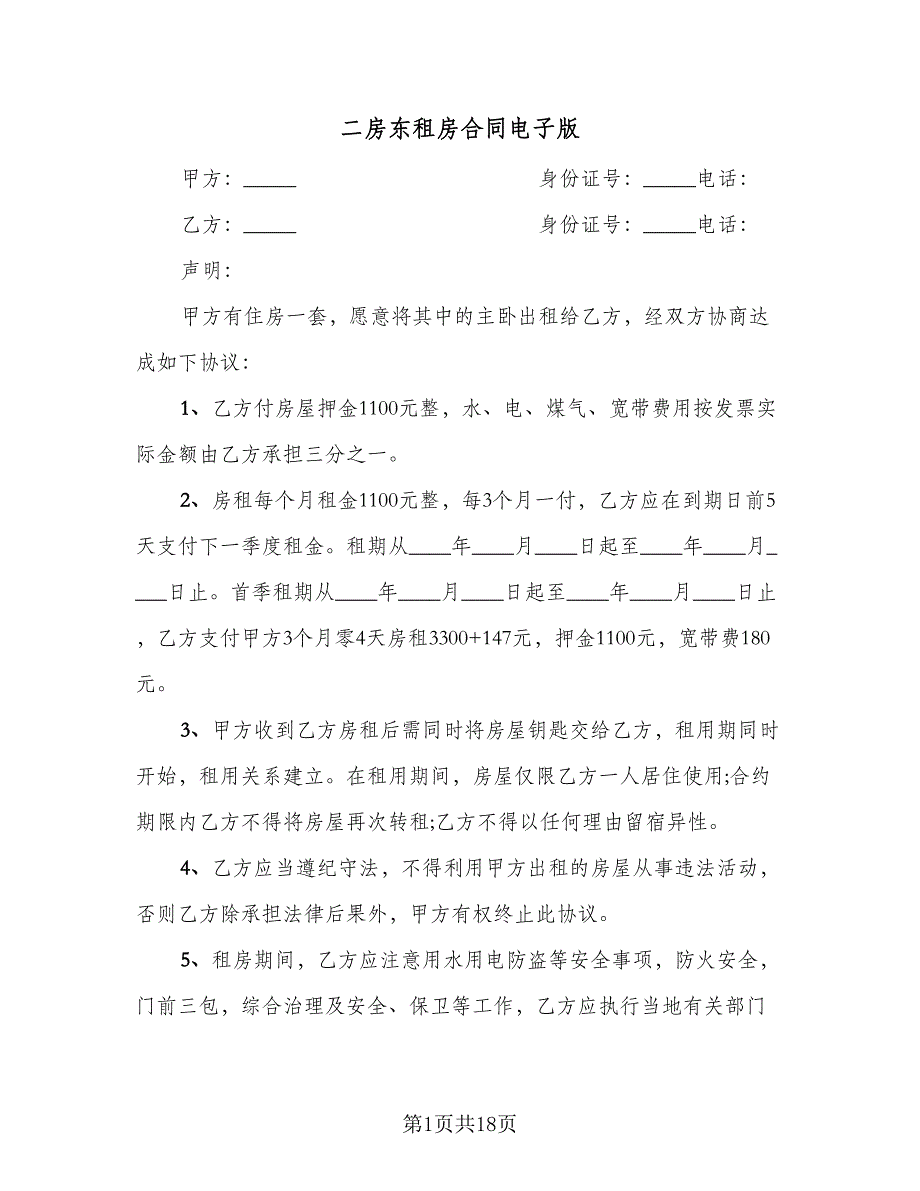 二房东租房合同电子版
甲方：_____ 身份证号：_____电话：
乙方：_____ 身份证号：_____电话：
声明：
甲方有住房一套，愿意将其中的主卧出租给乙方，经双方协商达
成如下协议：
1、乙方付房屋押金1100元整，水、电、煤气、宽带费用按发票实
际金额由乙方承担三分之一。
2、房租每个月租金1100元整，每3个月一付，乙方应在到期日前5
天支付下一季度租金。租期从____年____月____日起至____年____月_
___日止。首季租期从____年____月____日起至____年____月____日止
，乙方支付甲方3个月零4天房租3300+147元，押金1100元，宽带费180
元。
3、甲方收到乙方房租后需同时将房屋钥匙交给乙方，租用期同时
开始，租用关系建立。在租用期间，房屋仅限乙方一人居住使用;合约
期限内乙方不得将房屋再次转租;乙方不得以任何理由留宿异性。
4、乙方应当遵纪守法，不得利用甲方出租的房屋从事违法活动，
否则乙方除承担法律后果外，甲方有权终止此协议。
5、租房期间，乙方应注意用水用电防盗等安全事项，防火安全，
门前三包，综合治理及安全、保卫等工作，乙方应执行当地有关部门
第1页共18页